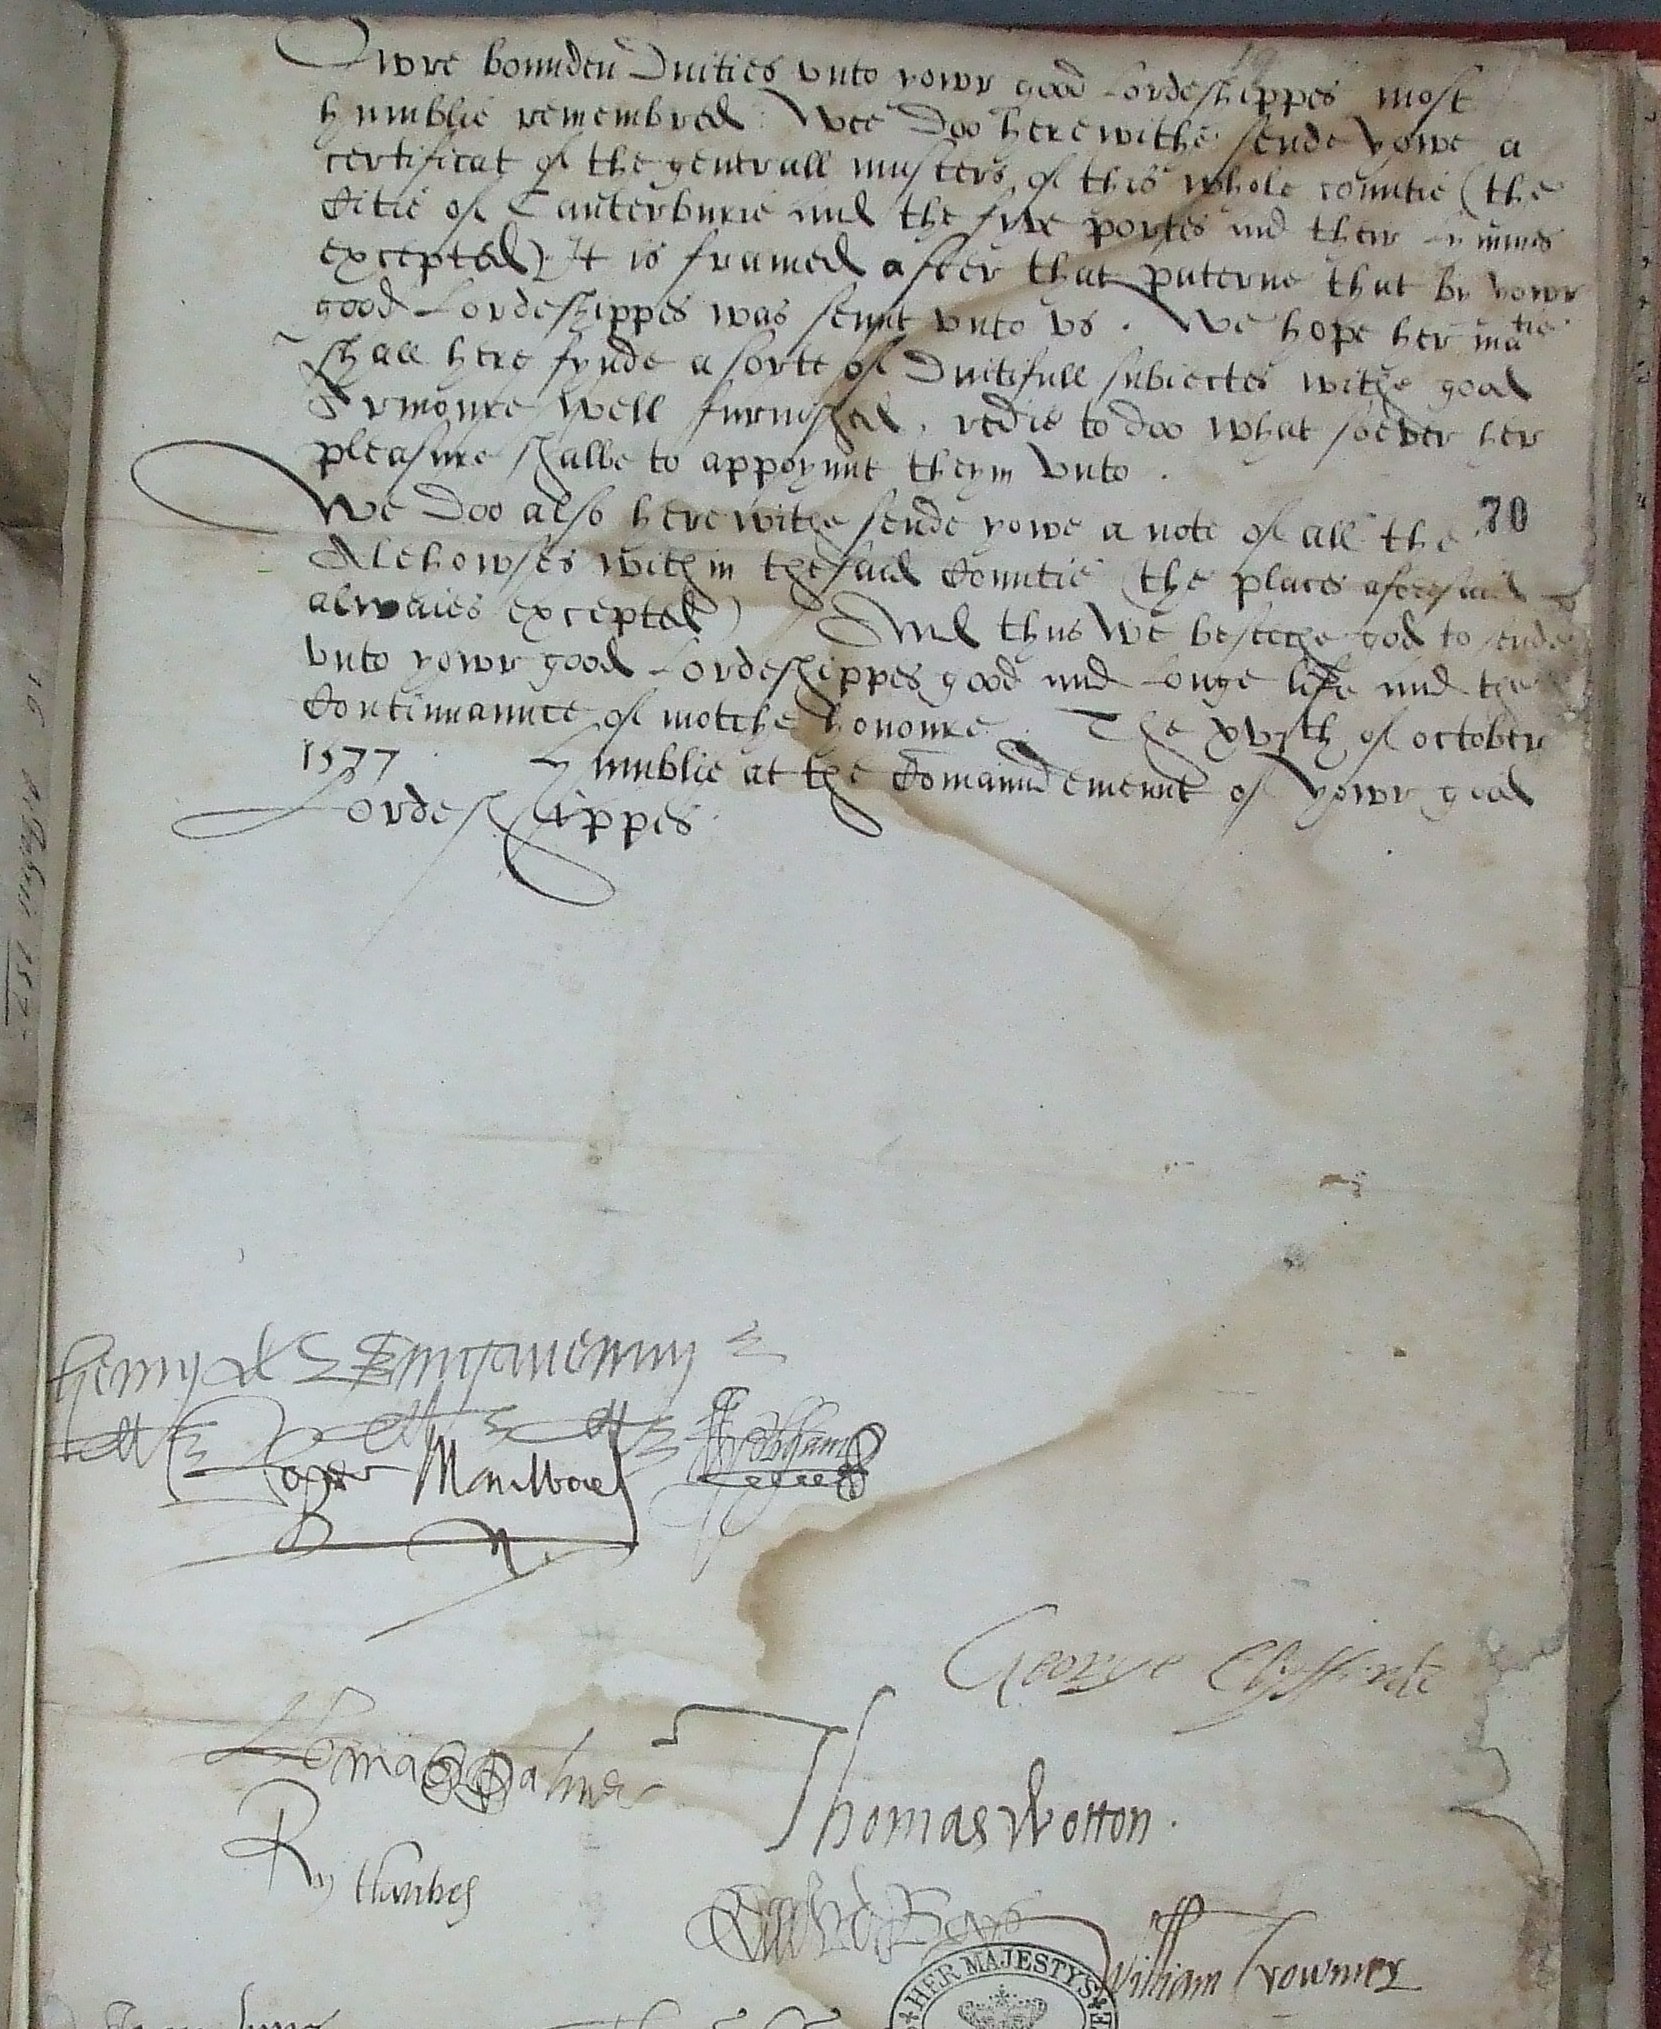 Owre bounden Duities vnto yowr good Lordeshippes most
humblie remembred. Wee Doo herewithe sende yowe a
certificat of the generall musters of this whole countie (the
Citie of Canterburie and the fyve portes and their Lymmes
excepted) It is framed after that paterne that by yowr
good Lordeshippes was sennt vnto vs. We hope her matie
shall here fynde a sorte of Duitifull subiectes withe good
Armoure well furnished, redie to doo what soever her
pleasure shalbe to appoynnt theym vnto.
We Doo also herewithe sende yowe a note of all the
70
Alehowses within the said Countie (the places aforesaid
alwaies excepted) And thus We beseche god to sende
vnto yowr good Lordeshippes good and Longe life and the
Continuannce of motche honoure. The xvjth of october
1577 Humblie at the Comaundemennt of yowr good
Lordeshippes
henry
Roger Manwood
Cobham
George Clifforde
Tomas Palmer
Thomas Wotton.
Ry
Edward Boys
William Crowmer
HER MAJESTYS